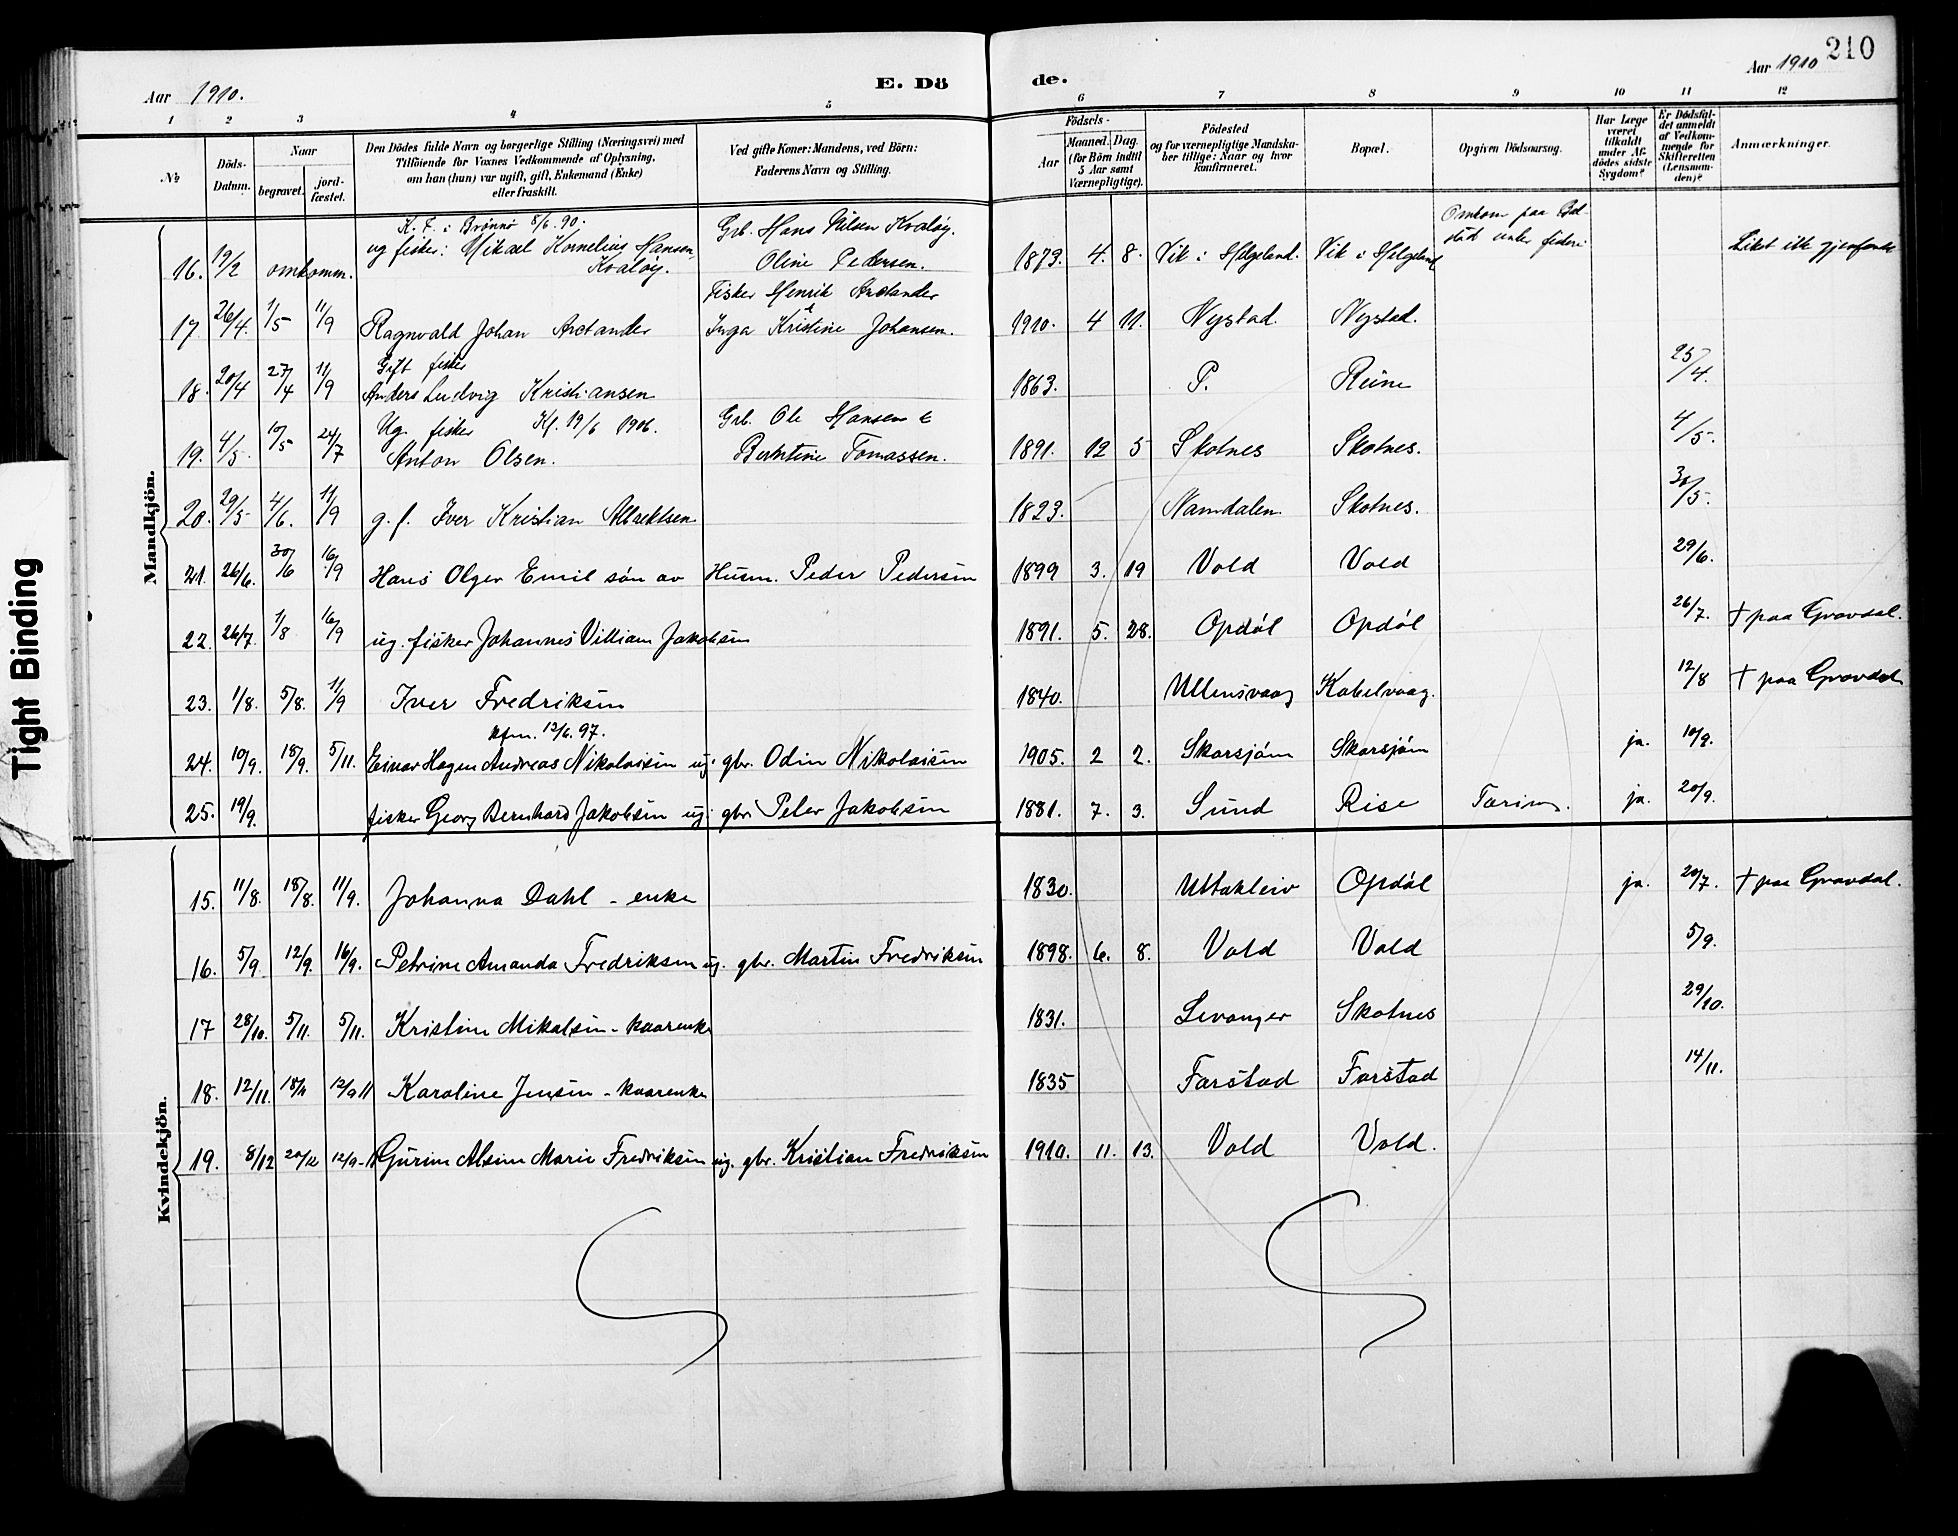 210
Aar 1910.
E. Dö
de.
Aar 1910
1 2 3 4 5 6 7 8 9 10 11 12
№
Döds-Datum.
Naar
begravet.
jord-fæstet.
Den Dödes fulde Navn og borgerlige Stilling (Næringsvei) med
Tilföiende for Voxnes Vedkommende af Oplysning,
om han (hun) var ugift, gift, Enkemand (Enke)
eller fraskilt.
Ved gifte Koner: Mandens, ved Börn:
Faderens Navn og Stilling.
Födsels-
Aar
Maaned. Dag
(for Börn indtil
5 Aar samt
Værnepligtige).
Födested
og for værnepligtige Mandska-
ber tillige: Naar og hvor
konfirmeret.
Bopæl.
Opgiven Dödsaarsag.
Har Læge
været
tilkaldt
under Af-
dödes sidste
Sygdom?
Er Dödsfal-
det anmeldt
af Vedkom-
mende for
Skifteretten
(Lensman-
den)?
Anmærkninger.
Mandkjön.
K. F. i Brønnø 8/6 90. Grb. Hans Nilsen Kvaløy. Omkom paa
16. 19/2 omkomm. ug fisker: Mikael Kornelius Hansen Kvaløy. Oline Pedersen. 1873. 4. 8. Vik i Helgeland. Vik i Helgeland under fiskeri Liket ikke gjenfundet
Fisker Henrik Arctander
17. 26/4. 1/5 11/9 Ragnvald Johan Arctander Inga Kristine Johansen. 1910. 4 11. Nystad. Nystad.
Gift fisker
18. 20/4 27/4 11/9 Anders Ludvig Kristiansen 1863. P. Reine 25/4.
Ug. fisker Kf. 19/6 1906. Grb. Ole Hansen &
19. 4/5. 10/5 24/7 Anton Olsen. Berntine Tomassen. 1891. 12 5 Skotnes Skotnes. 4/5.
20. 29/5 4/6. 11/9 g. f. Iver Kristian Albrektsen 1823. Namdalen. Skotnes. 30/5.
21. 26/6. 30/6 16/9 Hans Olger Emil søn av Husm. Peder Pedersen 1899 3. 19 Vold Vold 29/6.
22. 26/7. 1/8 16/9 ug. fisker Johannes Villiam Jakobsen 1891. 5. 28. Opdøl Opdøl 26/7. † paa Gravdal.
23. 1/8. 5/8. 11/9 Iver Fredriksen 1840. Ullensvaag Kabelvaag. 12/8 † paa Gravdal
kfm. 13/6. 97.
24. 10/9. 18/9. 5/11. Einar Hagen Andreas Nikolaisen ug. gbr. Odin Nikolaisen 1905. 2 2. Skarsjøm Skarsjøm ja. 10/9.
25. 19/9. fisker Georg Bernhard Jakobsen ug. gbr. Peter Jakobsen 1881. 7. 3. Sund Rise ja. 20/9.
Kvindekjön.
15. 11/8. 18/8. 11/9. Johanna Dahl - enke 1830. Uttakleiv Opdøl ja. 20/7. † paa Gravdal.
16. 5/9. 12/9. 16/9. Petrine Amanda Fredriksen ug. gbr. Martin Fredriksen 1898. 6. 8. Vold Vold 5/9.
17 28/10. 5/11. 5/11. Kristine Mikalsen - kaarenke 1831. Levanger Skotnes 29/10.
18. 12/11. 18/11 12/9 11 Karoline Jensen - kaarenke 1835 Farstad Farstad 14/11.
19. 8/12 20/12 12/9-11 Gurine Alsine Marie Fredriksen ug. gbr. Kristian Fredriksen 1910. 11. 13. Vold Vold.
Tight Binding